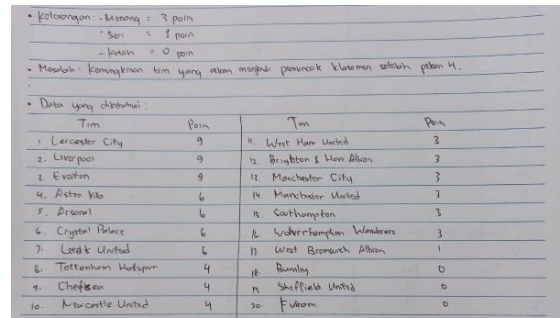 • Keterangan : - Menang = 3 poin
- Seri = 1 poin
- kalah = 0 poin
• Masalah : Kemungkinan tim yang akan menjadi pemuncak klasemen setelah pekan 4.
• Data yang diketahui :
Tim Poin Tim Poin
1. Leicester City 9 11. West Ham United 3
2. Liverpool 9 12. Brighton & Hove Albion 3
3. Everton 9 13. Manchester City 3
4. Aston Villa 6 14 Manchester United 3
5. Arsenal 6 15. Southampton 3
6. Crystal Palace 6 16. Wolverhampton Wanderers 3
7. Leeds United 6 17 West Bromwich Albion 1
8. Tottenham Hotspur 4 18. Burnley 0
9. Chelsea 4 19 Sheffield United 0
10. Newcastle United 4 20. Fulham 0